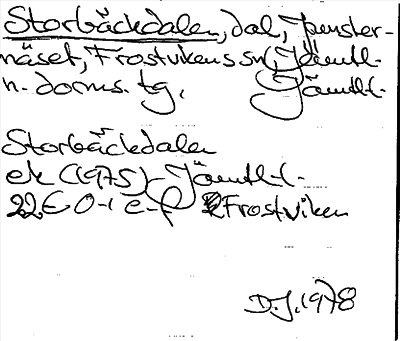 Storbäckdalen, dal, Junster-
näset, Frostvikens sn, Jämtl-
n. doms. tg, Jämtl-l.
Storbäckdalen
ek (1975) Jämtl-l.
22E 0-1 e-f Frostviken
D.J. 1978